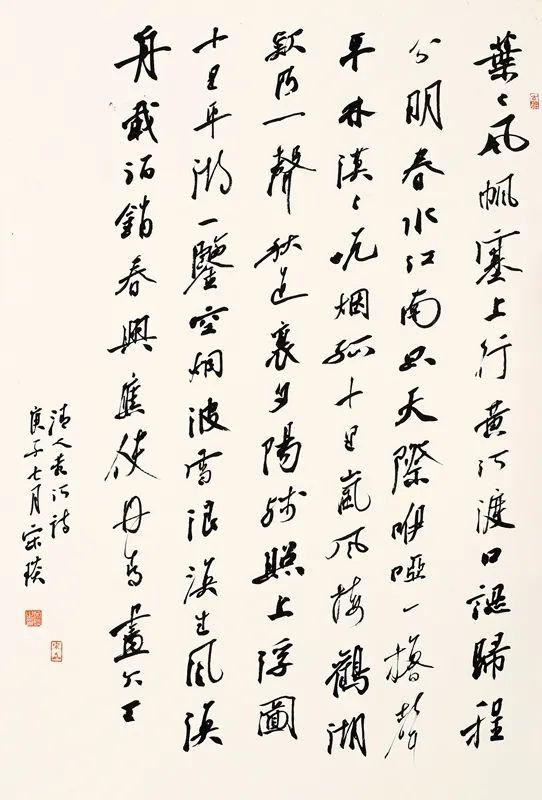 葉〻風帆塞上行黃河渡口認歸程
分明春水江南天際咿啞一櫓聲
平林漠〻晚烟孤十里嵐風接鸛湖
欸乃一聲秋色裏夕陽殘照上浮圖
十里平湖一鑒空烟波雪浪漾生風漁
舟載酒銷春興應使丹青畫不工
清人詩
庚子七月宋琰